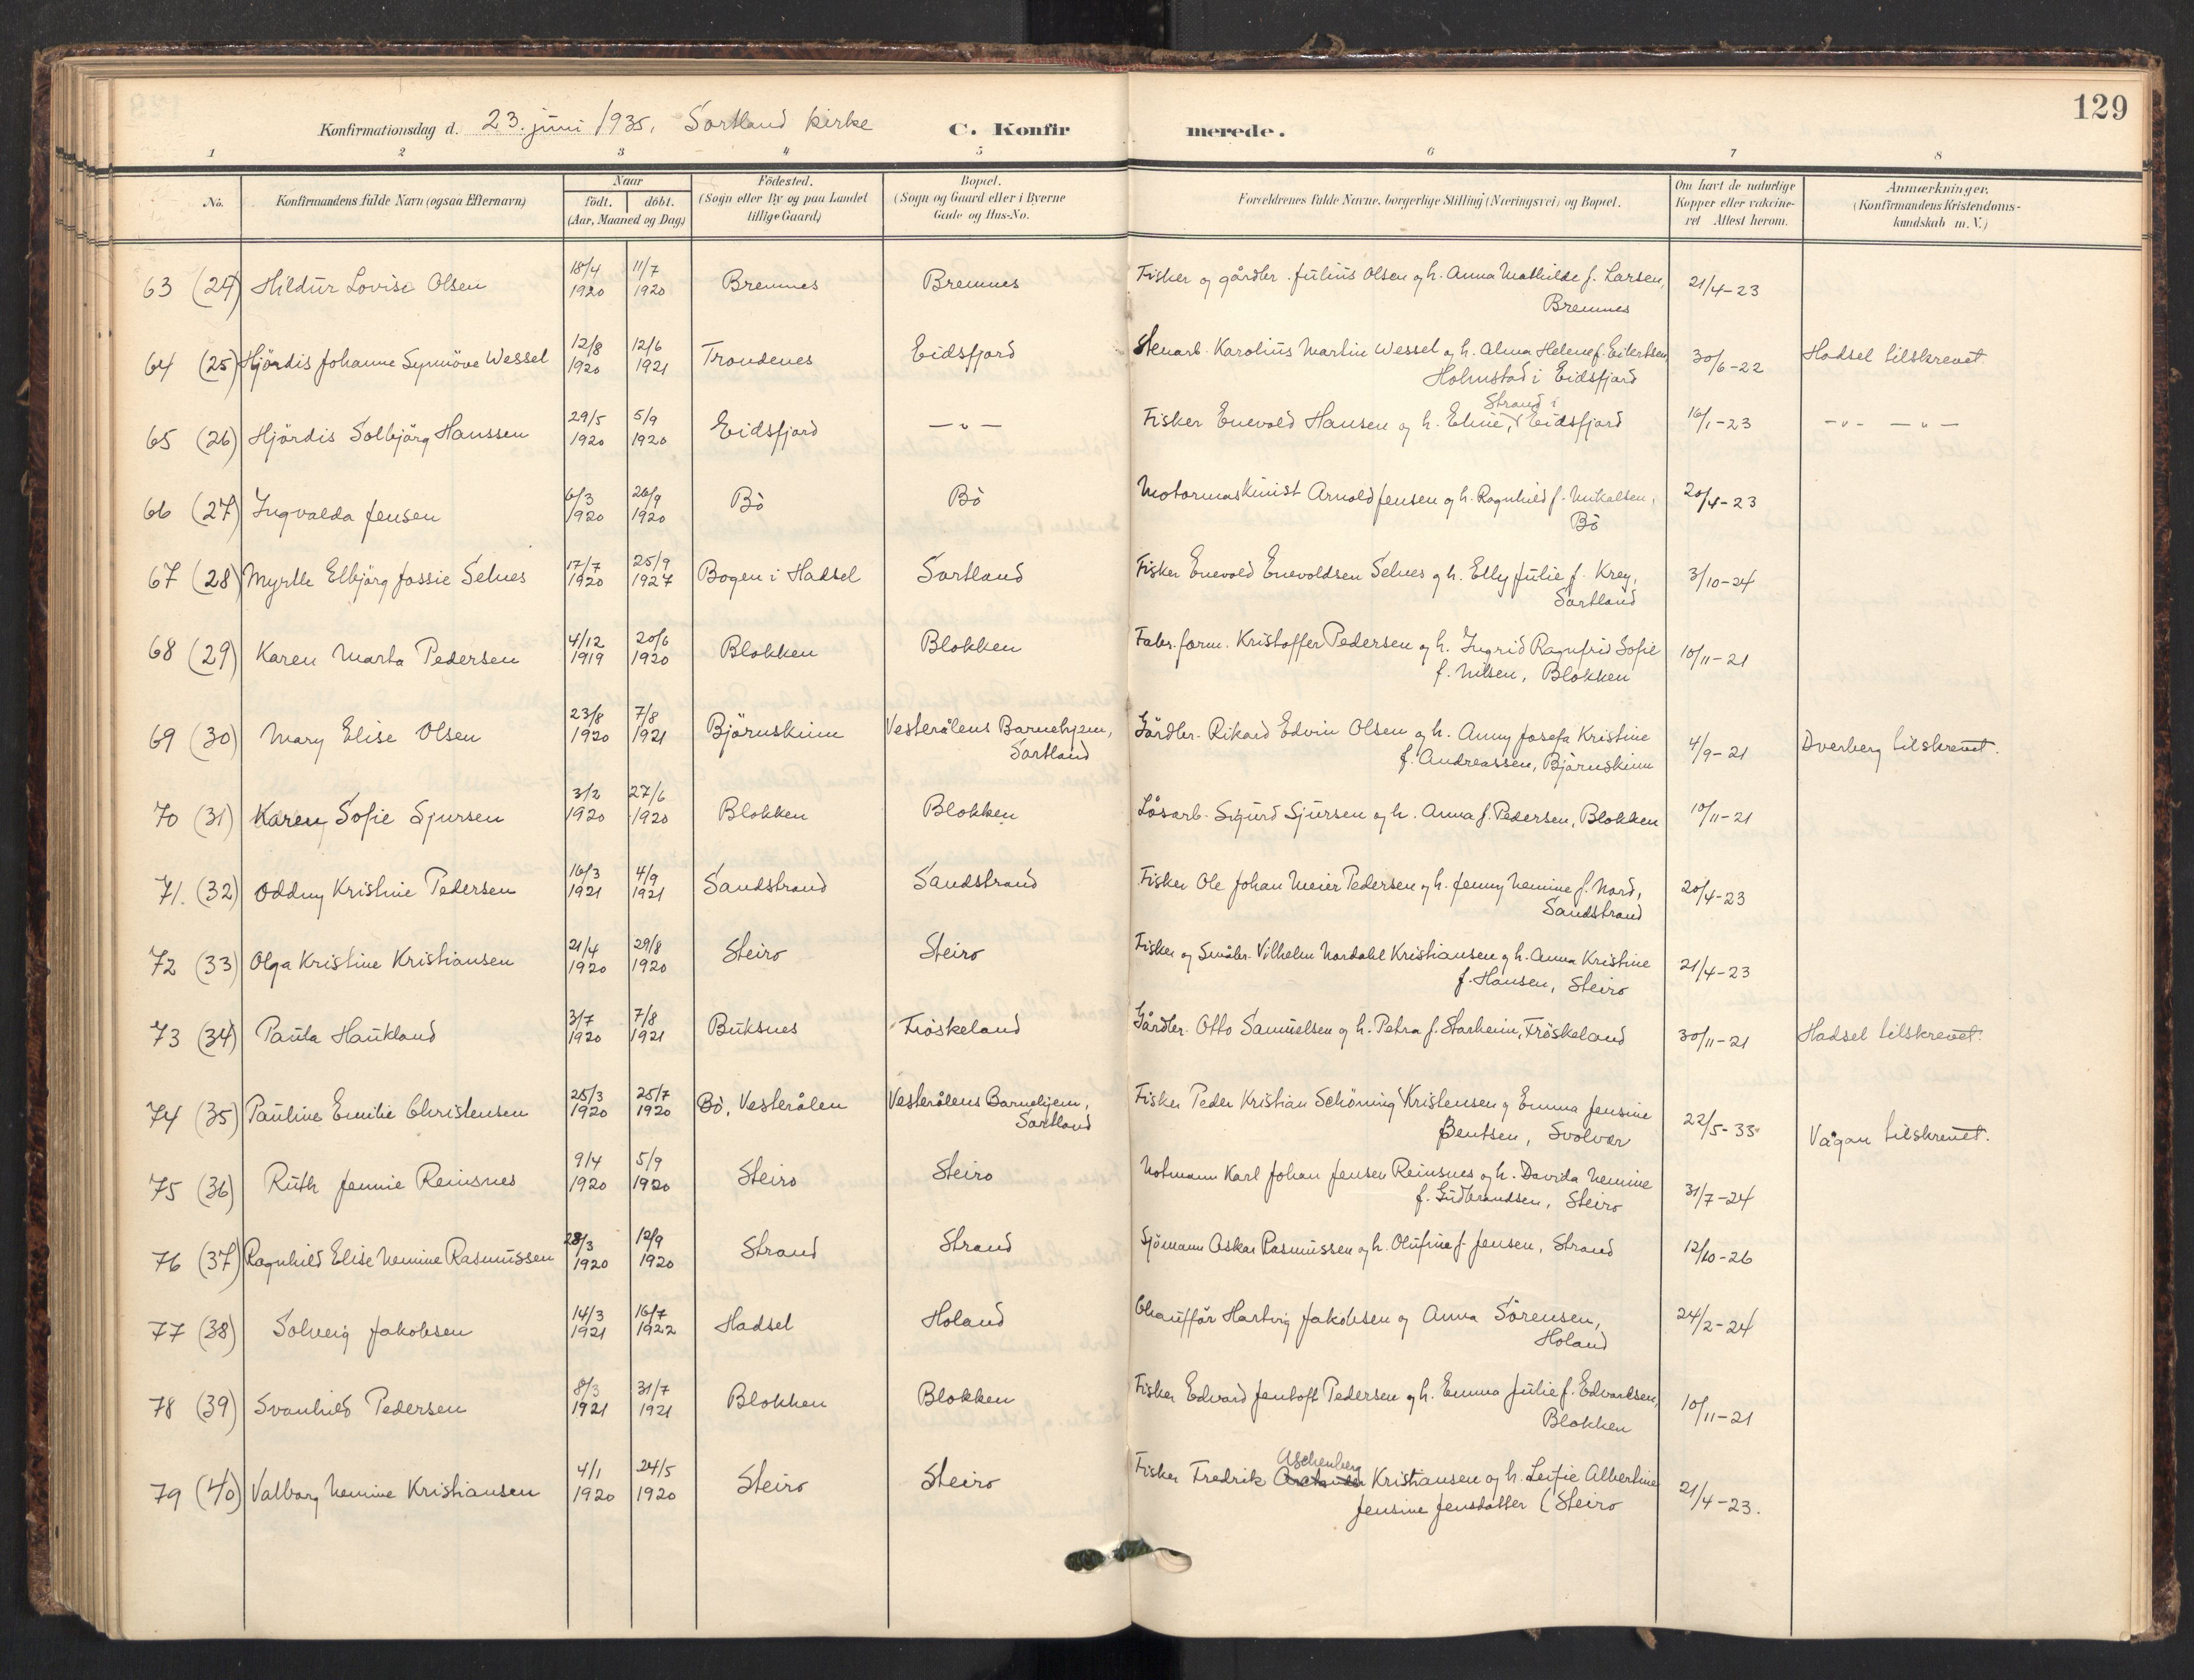 129
Konfirmationsdag d. 23. juni 1935. Sortland kirke C. Konfir merede.
1 2 3 4 5 6 7 8
No. Konfirmandens fulde Navn (ogsaa Efternavn) Naar født. døbt. (Aar, Maaned og Dag) Födested. (Sogn eller By og paa Landet tillige Gaard) Bopæl. (Sogn og Gaard eller i Byerne Gade og Hus-No. Forældrenes fulde Navne, borgerlige Stilling (Næringsvei) og Bopæl. Om havt de naturlige Kopper eller vakcineret Attest herom. Anmærkninger. (Konfirmandens Kristendomskundskab m. V.)
63 (24) Hildur Lovise Olsen 18/4 1920 11/7 1920 Bremnes Bremnes Fisker og gårdbr. Julius Olsen og h. Anna Mathilde f. Larsen, Bremnes 21/4-23
64 (25) Hjördis Johanne Synnöve Wessel 12/8 1920 12/6 1921 Trondenes Eidsfjord Stenarb. Karolius Martin Wessel og h. Alma Helene f. Eilertsen, Holmstad i Eidsfjord 30/6-22 Hadsel tilskrevet.
65 (26) Hjördis Solbjörg Hanssen 29/5 1920 5/9 1920 Eidsfjord — " — Fisker Enevold Hansen og h. Eline, Strand i Eidsfjord 16/1-23 -"- — " —
66 (27) Ingvalda Jensen 6/3 1920 26/9 1920 Bö Bö Motormaskinist Arnold Jensen og h. Ragnhild f. Mikalsen, Bö 20/4-23
67 (28) Myrtle Elbjörg Jossie Selnes 17/7 1920 25/9 1927 Bogen i Hadsel Sortland Fisker Enevold Enevoldsen Selnes og h. Elly Julie f. Krey, Sortland 3/10-24
68 (29) Karen Marta Pedersen 4/12 1919 20/6 1920 Blokken Blokken Fabr. form. Kristoffer Pedersen og h. Ingrid Ragnfrid Sofie f. Nilsen, Blokken 10/11-21
69 (30) Mary Elise Olsen 23/8 1920 7/8 1921 Björnskinn Vesterålens Barnehjem, Sortland Gårdbr. Rikard Edvin Olsen og h. Anny Josefa Kristine f. Andreassen, Björnskinn 4/9-21 Dverberg tilskrevet.
70 (31) Karen Sofie Sjursen 3/2 1920 27/6 1920 Blokken Blokken Lösarb. Sigurd Sjursen og h. Anna f. Pedersen, Blokken 10/11-21
71. (32) Oddny Kristine Pedersen 16/3 1921 4/9 1921 Sandstrand Sandstrand Fisker Ole Johan Meier Pedersen og h. Jenny Nemine f. Nord, Sandstrand 20/4-23
72 (33) Olga Kristine Kristiansen 21/4 1920 29/8 1920 Steiro Steiro Fisker og Småbr. Vilhelm Nordahl Kristiansen og h. Anna Kristine f. Hansen, Steiro 21/4-23
73 (34) Paula Haukland 3/7 1920 7/8 1921 Buksnes Fröskeland Gårdbr. Otto Samuelsen og h. Petra f. Starheim, Fröskeland 30/11-21 Hadsel tilskrevet.
74 (35) Pauline Emilie Christensen 25/3 1920 25/7 1920 Bö, Vesterålen Vesterålens Barnehjem, Sortland Fisker Peder Kristian Schöning Kristensen og Emma Jensine Bentsen, Svolvær 22/5-33 Vågan tilskrevet.
75 (36) Ruth Jennie Reinsnes 9/4 1920 5/9 1920 Steiro Steiro Notmann Karl Johan Jensen Reinsnes og h. Davida Nemine f. Gudbrandsen, Steiro 31/7-24
76 (37) Ragnhild Elise Nemine Rasmussen 28/3 1920 12/9 1920 Strand Strand Sjömann Oskar Rasmussen og h. Olufine f. Jensen, Strand 12/10-26
77 (38) Solveig Jakobsen 14/3 1921 16/7 1922 Hadsel Holand Chaufför Hartvig Jakobsen og Anna Sörensen, Holand 24/2-24
78 (39) Svanhild Pedersen 8/3 1921 31/7 1921 Blokken Blokken Fisker Edvard Jentoft Pedersen og h. Emma Julie f. Edvardsen, Blokken 10/11-21
79 (40) Valborg Nemine Kristiansen 4/1 1920 24/5 1920 Steiro Steiro Fisker Fredrik Aschenberg Kristiansen og h. Leifie Albertine Jensine Jensdatter (Steiro 21/4-23.